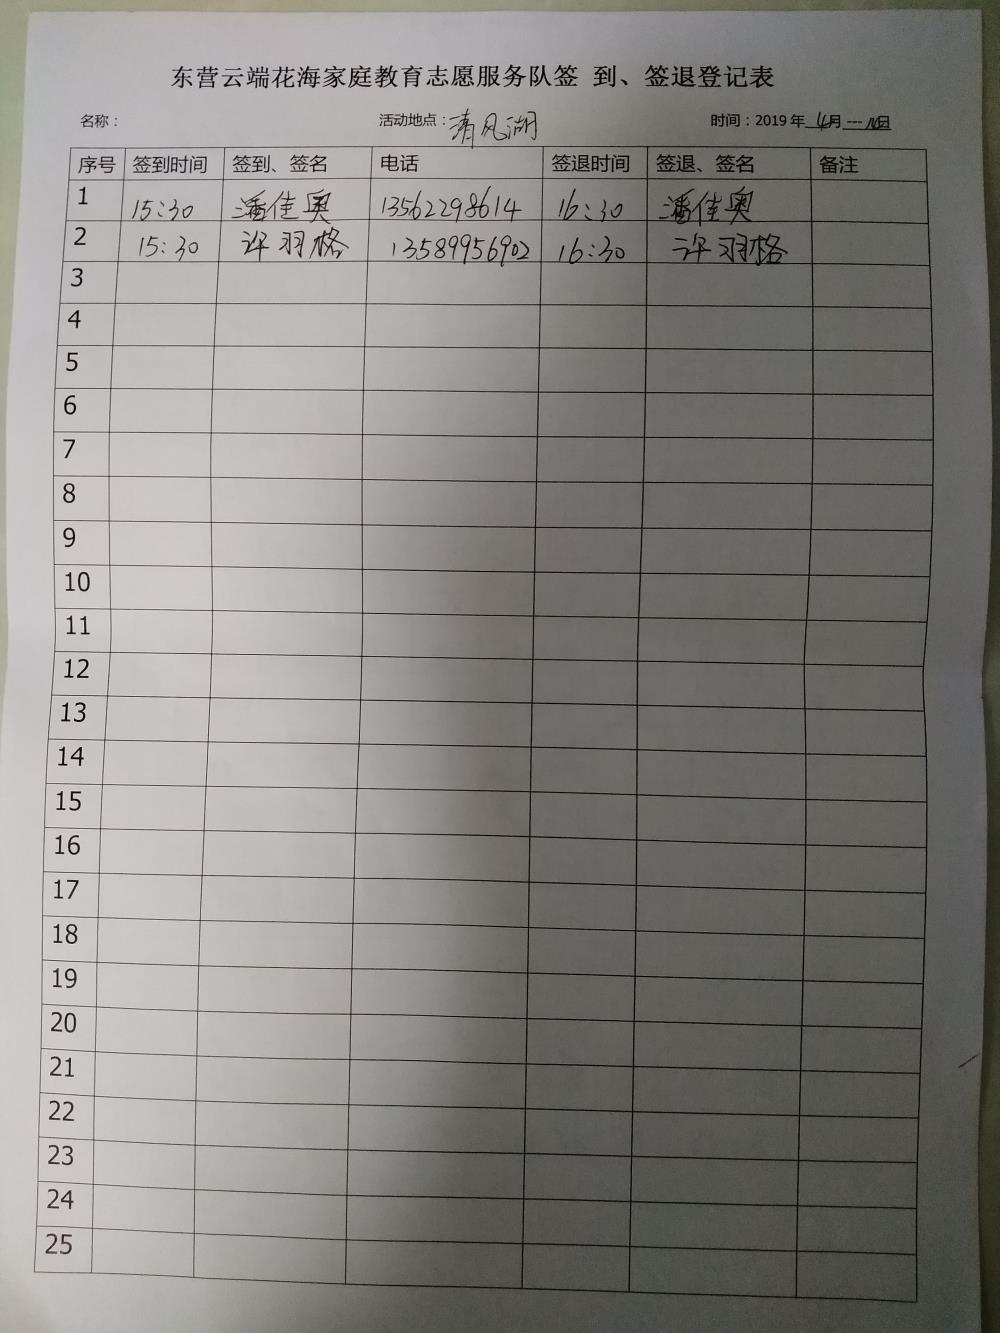 东营云端花海家庭教育志愿服务队签 到、签退登记表
名称： 活动地点：清风湖 时间：2019 年 4月 --- 10日
序号 签到时间 签到、签名 电话 签退时间 签退、签名 备注
1 15:30 潘佳奥 13562298614 16:30 潘佳奥
2 15:30 许羽格 13589956902 16:30 许羽格
3
4
5
6
7
8
9
10
11
12
13
14
15
16
17
18
19
20
21
22
23
24
25